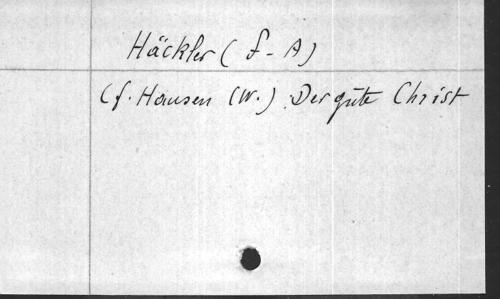 Häckler (F-A)
Cf. Hausen (W.) Der gute Christ